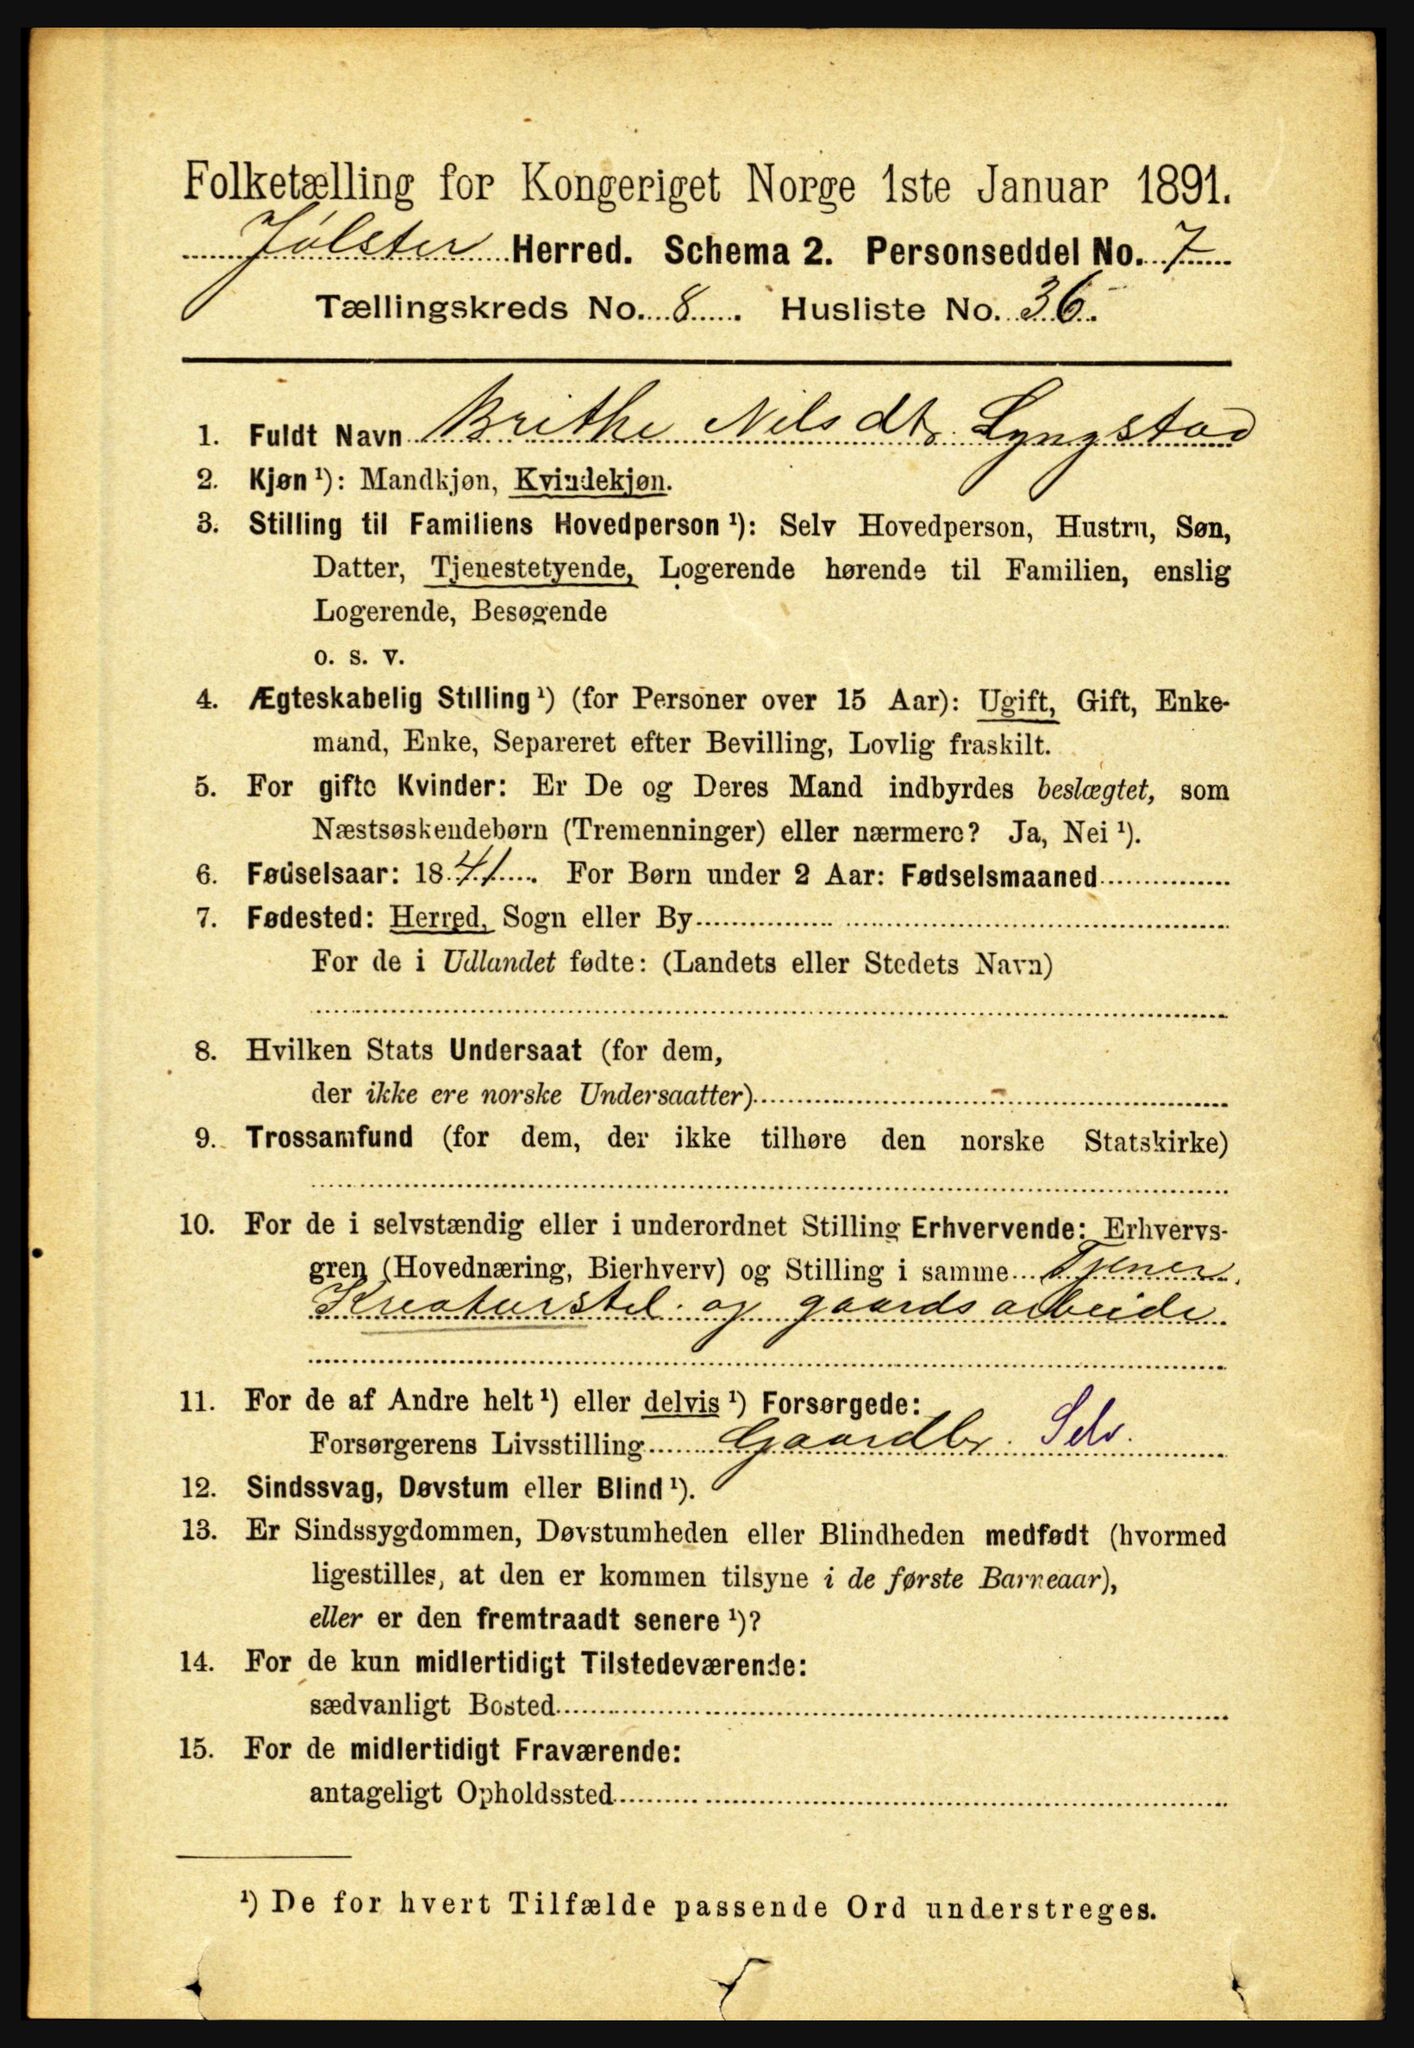 Folketælling for Kongeriget Norge 1ste Januar 1891.
Jølster Herred. Schema 2. Personseddel No. 7
Tællingskreds No. 8. Husliste No. 36.
1. Fuldt Navn Brithe Nilsdtr. Lyngstad
2. Kjøn ¹): Mandkjøn, Kvindekjøn.
3. Stilling til Familiens Hovedperson ¹): Selv Hovedperson, Hustru, Søn,
Datter, Tjenestetyende, Logerende hørende til Familien, enslig
Logerende, Besøgende
o. s. v.
4. Ægteskabelig Stilling ¹) (for Personer over 15 Aar): Ugift, Gift, Enke-
mand, Enke, Separeret efter Bevilling, Lovlig fraskilt.
5. For gifte Kvinder: Er De og Deres Mand indbyrdes beslægtet, som
Næstsøskendebørn (Tremenninger) eller nærmere? Ja, Nei ¹).
6. Fødselsaar: 1841. For Børn under 2 Aar: Fødselsmaaned
7. Fødested: Herred, Sogn eller By
For de i Udlandet fødte: (Landets eller Stedets Navn)
8. Hvilken Stats Undersaat (for dem,
der ikke ere norske Undersaatter)
9. Trossamfund (for dem, der ikke tilhøre den norske Statskirke)
10. For de i selvstændig eller i underordnet Stilling Erhvervende: Erhvervs-
gren (Hovednæring, Bierhverv) og Stilling i samme Tjener.
Kreaturstel og gaardsarbeide
11. For de af Andre helt ¹) eller delvis ¹) Forsørgede:
Forsørgerens Livsstilling Gaardbr. Selv.
12. Sindssvag, Døvstum eller Blind ¹).
13. Er Sindssygdommen, Døvstumheden eller Blindheden medfødt (hvormed
ligestilles, at den er kommen tilsyne i de første Barneaar),
eller er den fremtraadt senere ¹)?
14. For de kun midlertidigt Tilstedeværende:
sædvanligt Bosted
15. For de midlertidigt Fraværende:
antageligt Opholdssted
¹) De for hvert Tilfælde passende Ord understreges.